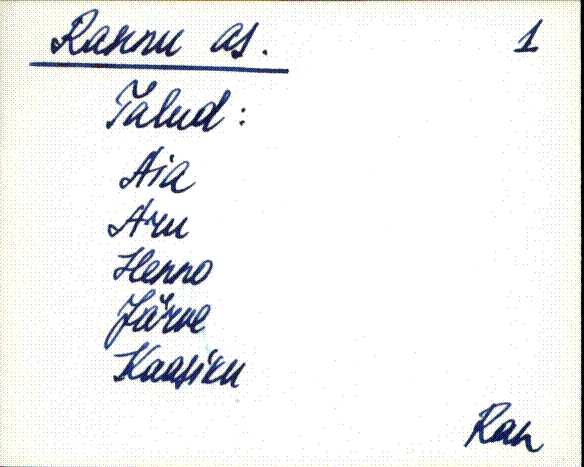 Rannu as. 1
Talud:
Aia
Aru
Henno
Järve
Kaasiku
Ran